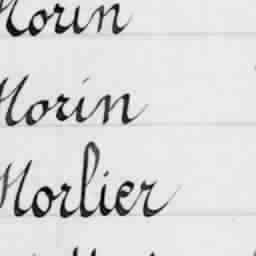 Morin
Morin
Morlier